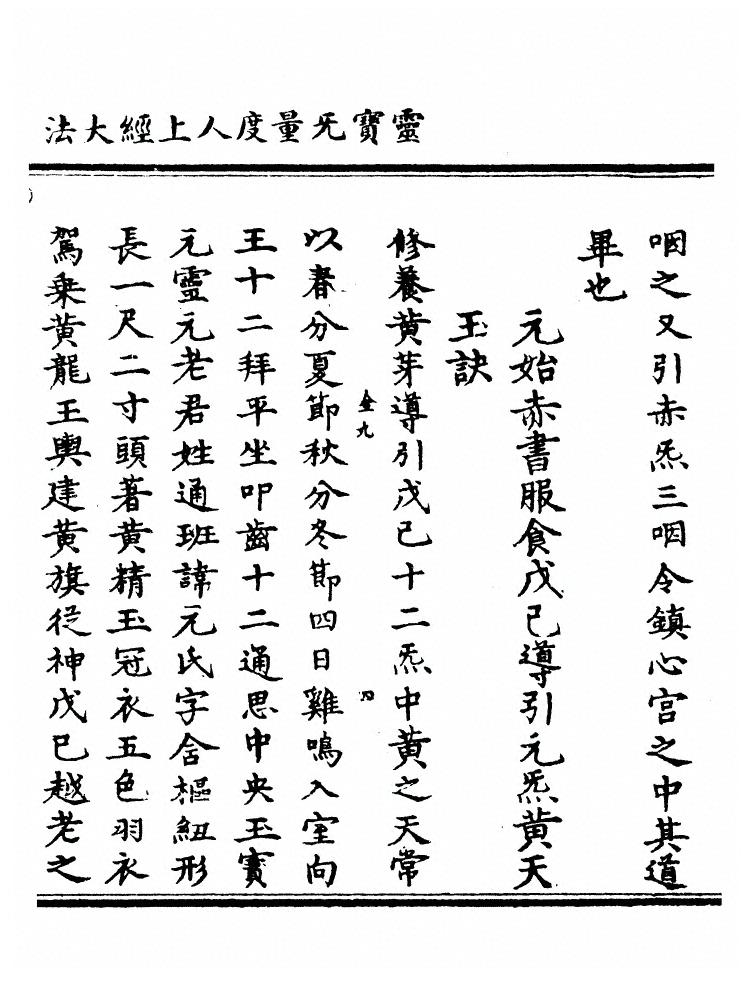 靈寶无量度人上經大法
咽之又引赤炁三咽令鎮心宮之中其道
畢也
元始赤書服食戊己導引元炁黃天
玉訣
修養黃芽導引戊己十二炁中黃之天常
全九
以春分夏節秋分冬節四日雞鳴入室向
王十二拜平坐叩齒十二通思中央玉寶
元靈元老君姓通班諱元氏字舍樞紐形
長一尺二寸頭著黃精玉冠衣五色羽衣
駕乘黃龍玉輿建黃旗從神戊己越老之